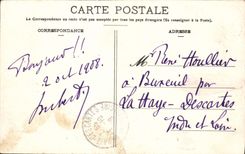 CARTE POSTALE
La Correspondance au recto n'est pas acceptée par tous les pays étrangers (Se renseigner à la Poste).
CORRESPONDANCE
ADRESSE
Bonjour!!
2 oct 1908.
M. René Houllier
à Buxeuil par
La Haye-Descartes
Indre et Loire.